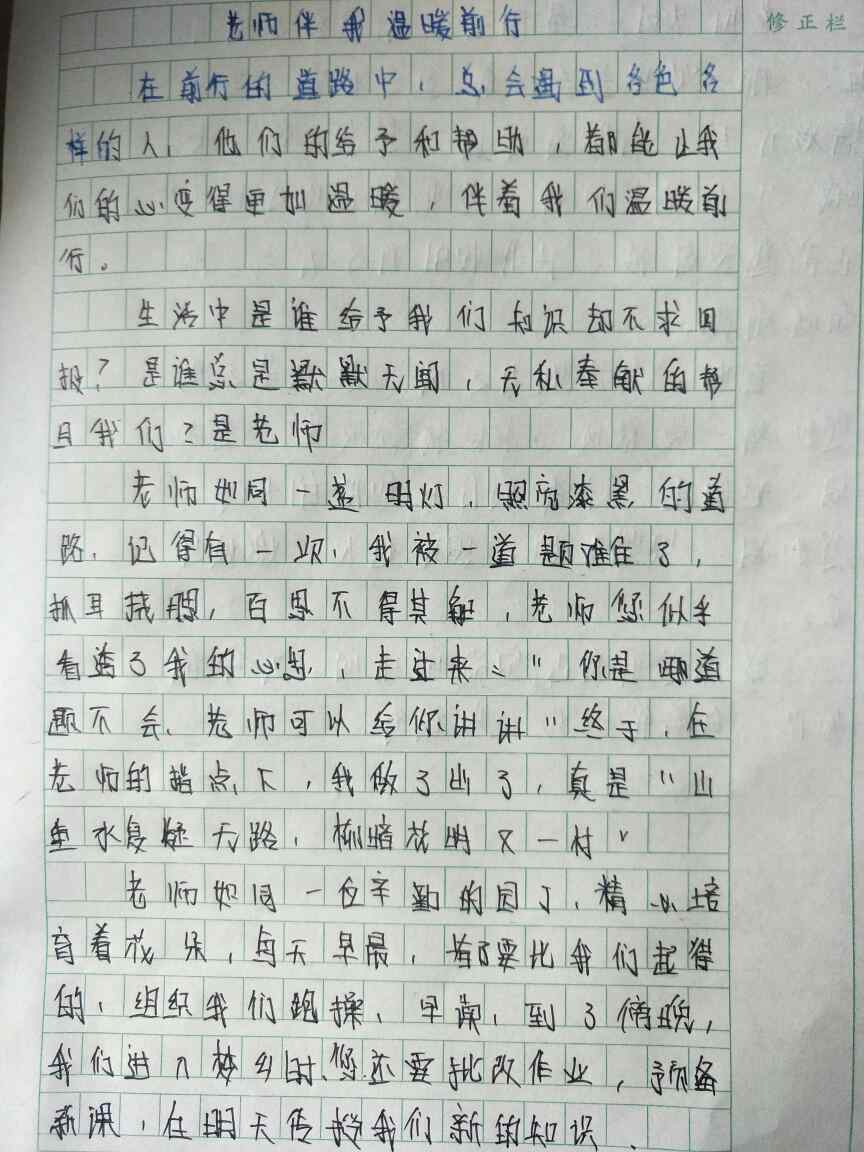 修正栏
老师伴我温暖前行
在前行的道路中，总会遇到各色各
样的人，他们的给予和帮助，都能让我
们的心变得更加温暖，伴着我们温暖前
行。
生活中是谁给予我们知识却不求回
报？是谁总是默默无闻，无私奉献的帮
且我们？是老师
老师如同一盏明灯，照亮漆黑的道
路，记得有一次，我被一道题难住了，
抓耳挠腮，百思不得其解，老师您似乎
看透了我的心思，走过来：“你是哪道
题不会，老师可以给你讲讲”终于，在
老师的指点下，我做了出了，真是“山
重水复疑无路，柳暗花明又一村”
老师如同一位辛勤的园丁，精心培
育着花朵，每天早晨，都要比我们起得
的，组织我们跑操，早读，到了傍晚，
我们进入梦乡时，您还要批改作业，预备
新课，在明天传授我们新的知识．